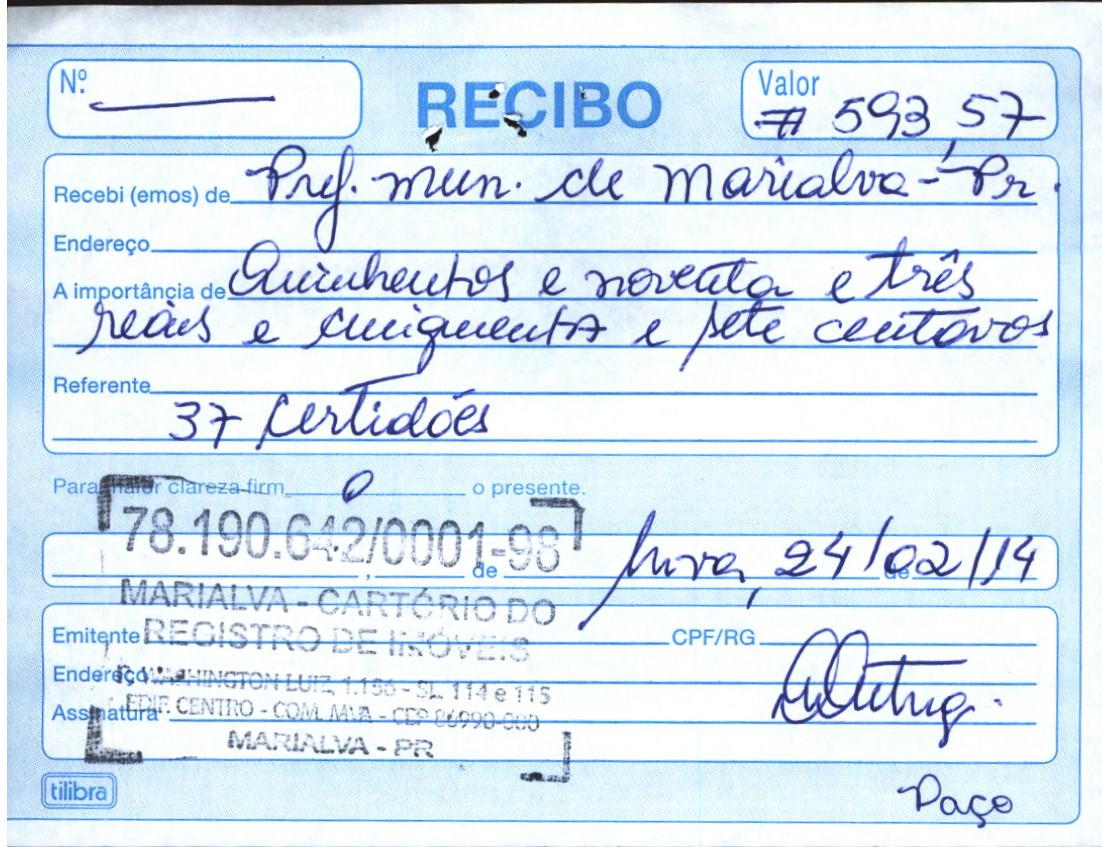 Nº.
RECIBO
Valor
# 593,57
Recebi (emos) de Pref. mun. de Marialva - Pr.
Endereço
A importância de Quinhentos e noventa e três
reais e cinquenta e sete centavos
Referente
37 Certidões
Para maior clareza firm o o presente.
78.190.642/0001-98
, de de
Mva, 24/02/14
MARIALVA - CARTÓRIO DO
REGISTRO DE IMÓVEIS
Emitente CPF/RG
Endereço R. WASHINGTON LUIZ, 1.156 - SL. 114 e 115
EDIF. CENTRO - COM. MVA - CEP 86990-000
Assinatura
MARIALVA - PR
tilibra
Paço